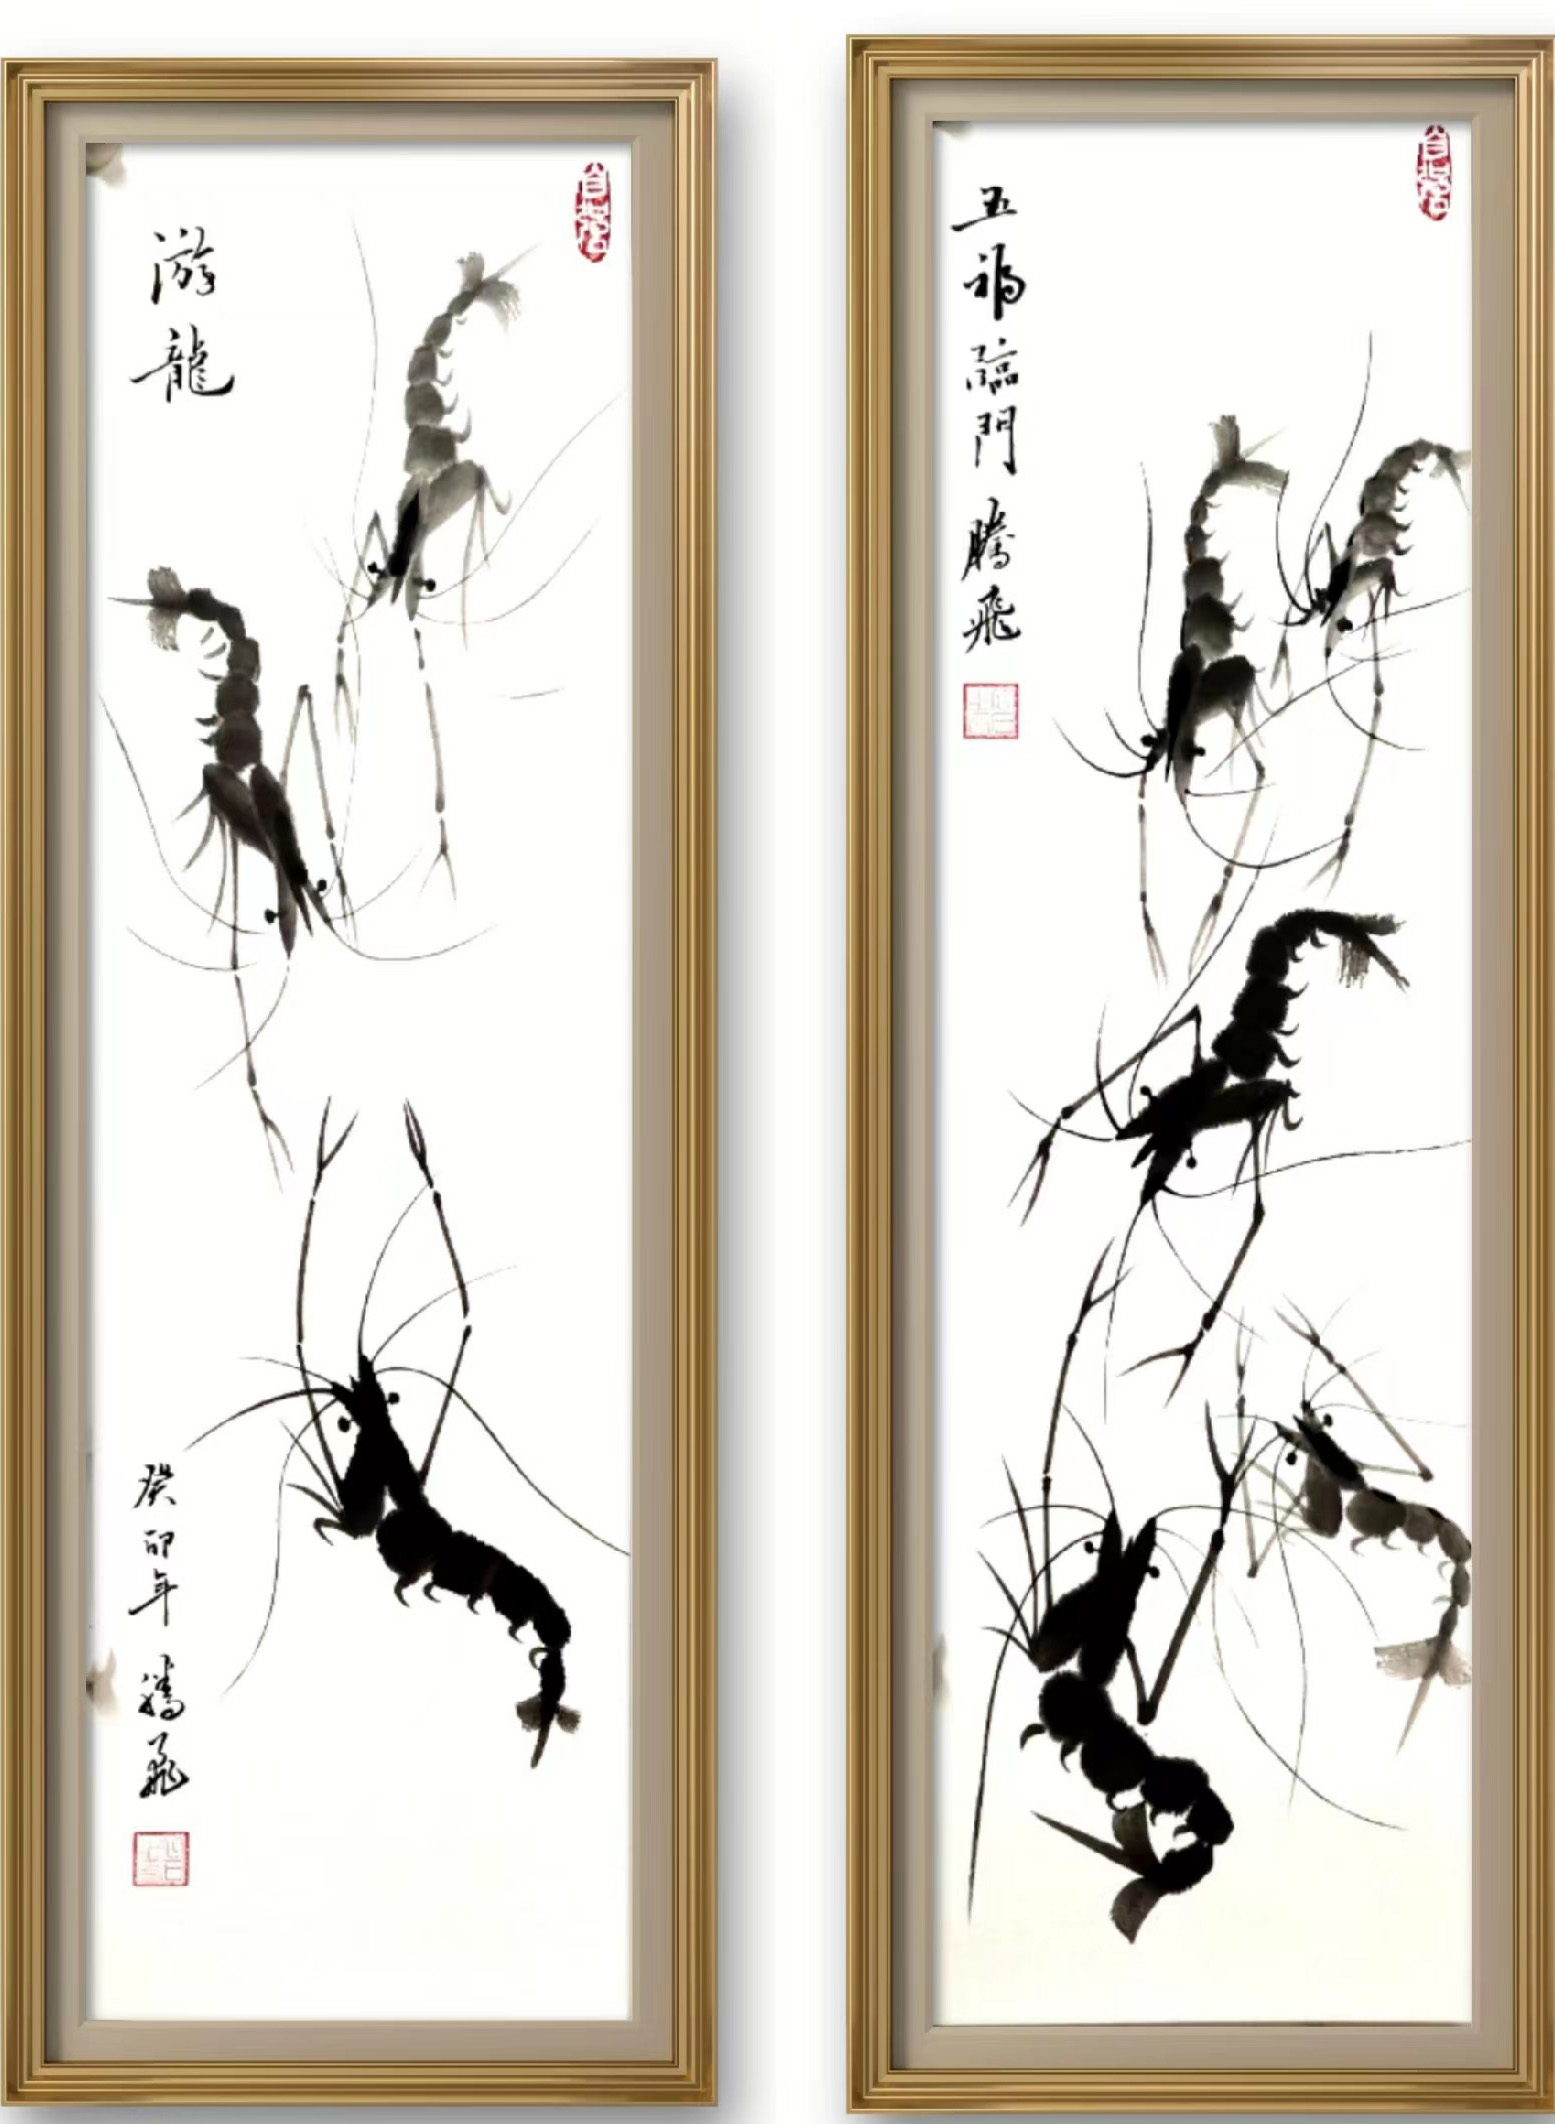 游龍
癸卯年 騰飛
五福臨門 騰飛